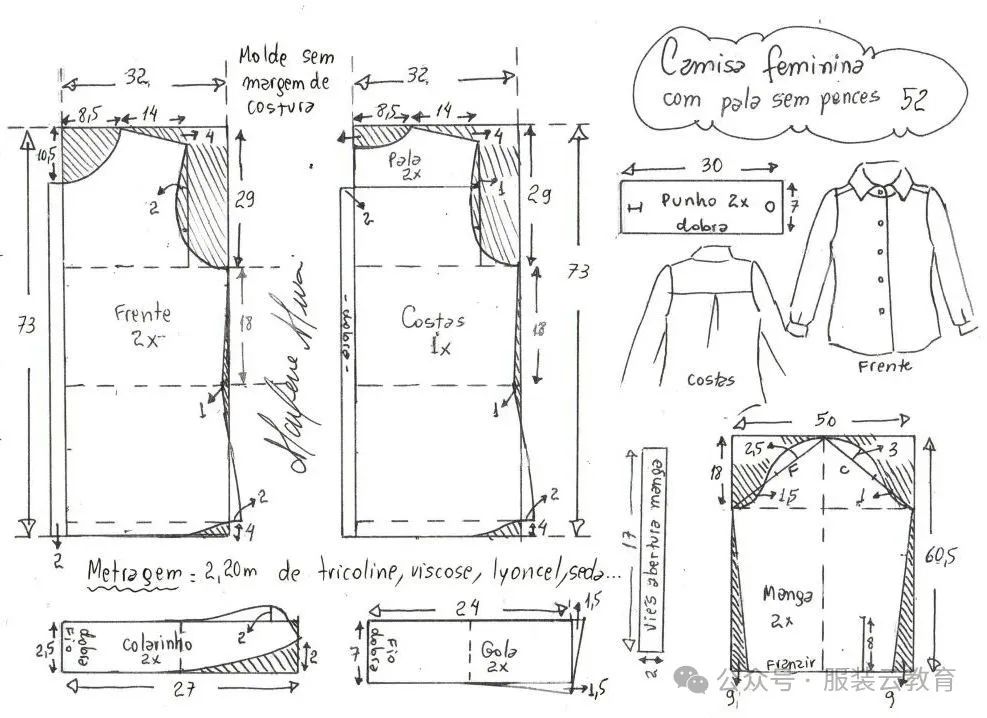 Molde sem
margem de
costura
Camisa feminina
com pala sem pences 52
32
8,5
14
4
10,5
29
2
73
Frente
2x
18
1
2
4
2
Marlene Mukai
32
8,5
14
4
Pala
2x
1
2
29
73
Costas
1x
- dobra -
18
1
2
4
30
Punho 2x
dobra
7
Costas
Frente
50
18
2,5
F
C
3
1,5
1
60,5
Manga
2x
8
Franzir
9
9
17
Viés abertura manga
2
Metragem: 2,20m de tricoline, viscose, lyoncel, seda...
2,5
Fio
dobra
Colarinho
2x
2
2
27
24
7
dobra
Fio
Gola
2x
1,5
1,5
公众号 · 服装云教育